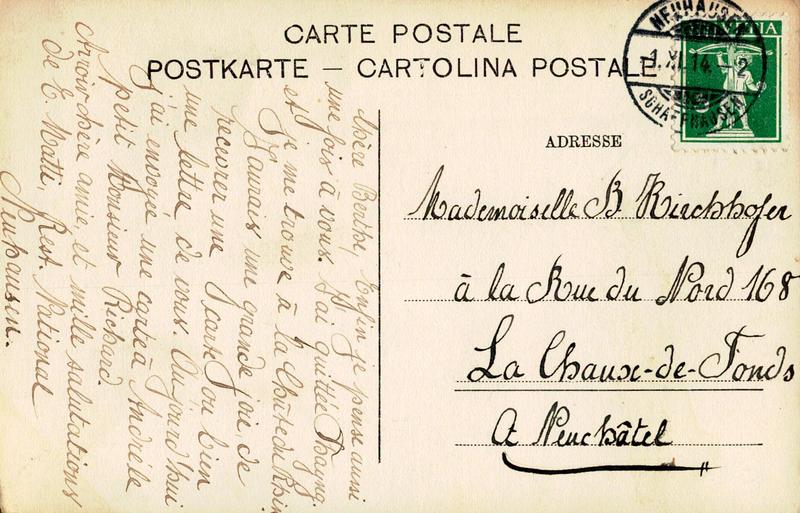 CARTE POSTALE
POSTKARTE – CARTOLINA POSTALE
NEUHAUSEN
1. XI. 14. – 2
SCHAFFHAUSEN
HELVETIA
ADRESSE
Mademoiselle B. Kirchhofer
à la Rue du Nord 168
La Chaux-de-Fonds
Ct Neuchâtel
Chère Berthe, Enfin je pense aussi
une fois à vous. J'ai quitté
et je me trouve à la Chûte du Rhin
J'aurais une grande joie de
recevoir une carte ou bien
une lettre de vous. Aujourd'hui
j'ai envoyé une carte à
petit Monsieur Richard.
Aurevoir chère amie, et mille salutations
de E. Matti, Rest. National
Neuhausen.